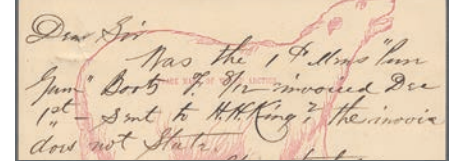 Dear Sir
Was the 1 Pr Mens "Pure
Gum" Boots F. 8/12 invoiced Dec
1st - Sent to H.H. King? the invoice
does not State.